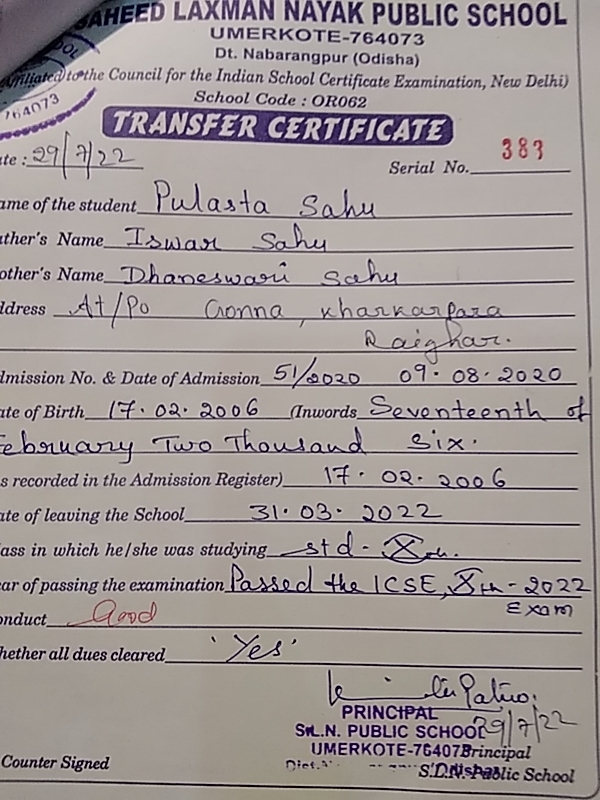 SAHEED LAXMAN NAYAK PUBLIC SCHOOL
UMERKOTE-764073
Dt. Nabarangpur (Odisha)
Affiliated to the Council for the Indian School Certificate Examination, New Delhi)
School Code : OR062
764073
TRANSFER CERTIFICATE
ate : 29/7/22 Serial No. 383
ame of the student Pulasta Sahu
ather's Name Iswar Sahu
other's Name Dhaneswari Sahu
ddress At/Po Gonna, Kharkarpara
Raighar.
dmission No. & Date of Admission 51/2020 09.08.2020
ate of Birth 17.02.2006 (Inwords Seventeenth of
February Two Thousand Six.
s recorded in the Admission Register) 17.02.2006
ate of leaving the School 31.03.2022
lass in which he/she was studying std - Xth.
ear of passing the examination Passed the ICSE, Xth - 2022
Exam
onduct Good
hether all dues cleared 'Yes'
PRINCIPAL
S.L.N. PUBLIC SCHOOL 29/7/22
UMERKOTE-764073 Principal
Counter Signed S.L.N. Public School